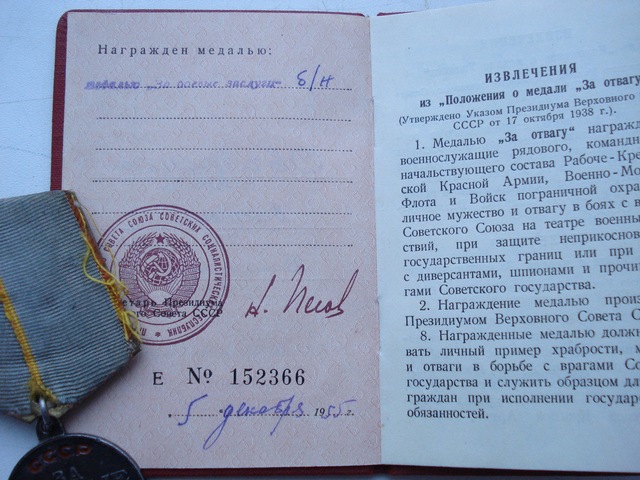 Награжден медалью:
медалью „За боевые заслуги" б/н
СОВЕТА СОЮЗА СОВЕТСКИХ СОЦИАЛИСТИЧЕСКИХ РЕСПУБЛИК
Президиума
Совета СССР
Е № 152366
5 декабря 1955 г.
СССР
ЗА
ИЗВЛЕЧЕНИЯ
из „Положения о медали „За отвагу
(Утверждено Указом Президиума Верховного
СССР от 17 октября 1938 г.).
1. Медалью „За отвагу" награжд
военнослужащие рядового, команди
начальствующего состава Рабоче-Кре
ской Красной Армии, Военно-Мо
Флота и Войск пограничной охра
личное мужество и отвагу в боях с в
Советского Союза на театре военны
ствий, при защите неприкоснов
государственных границ или при
с диверсантами, шпионами и прочи
гами Советского государства.
2. Награждение медалью прои
Президиумом Верховного Совета С
8. Награжденные медалью должн
вать личный пример храбрости, м
и отваги в борьбе с врагами Со
государства и служить образцом дл
граждан при исполнении государ
обязанностей.